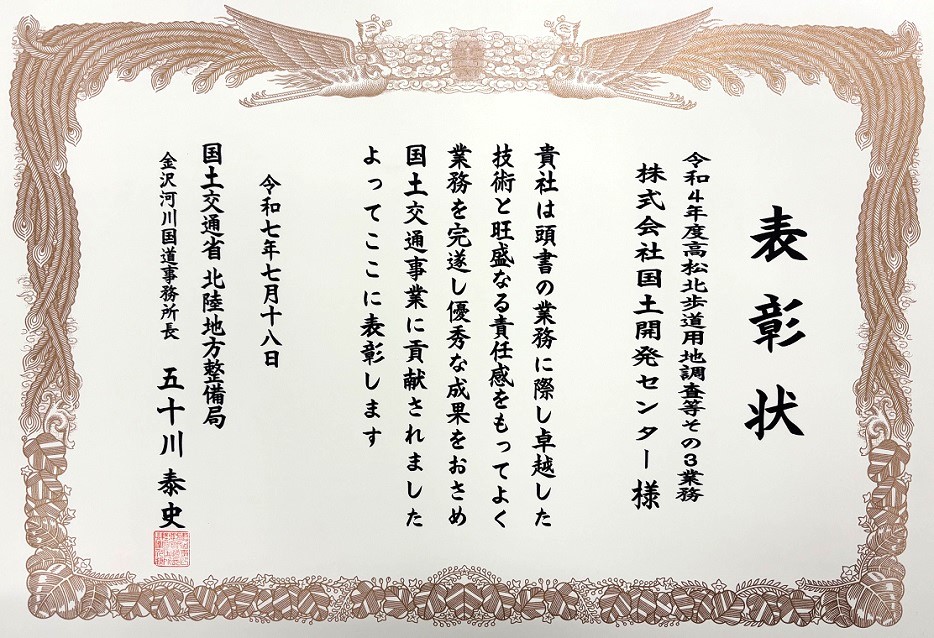 表彰状
令和４年度高松北歩道用地調査等その３業務
株式会社国土開発センター様
貴社は頭書の業務に際し卓越した
技術と旺盛なる責任感をもってよく
業務を完遂し優秀な成果をおさめ
国土交通事業に貢献されました
よってここに表彰します
令和七年七月十八日
国土交通省 北陸地方整備局
金沢河川国道事務所長 五十川泰史